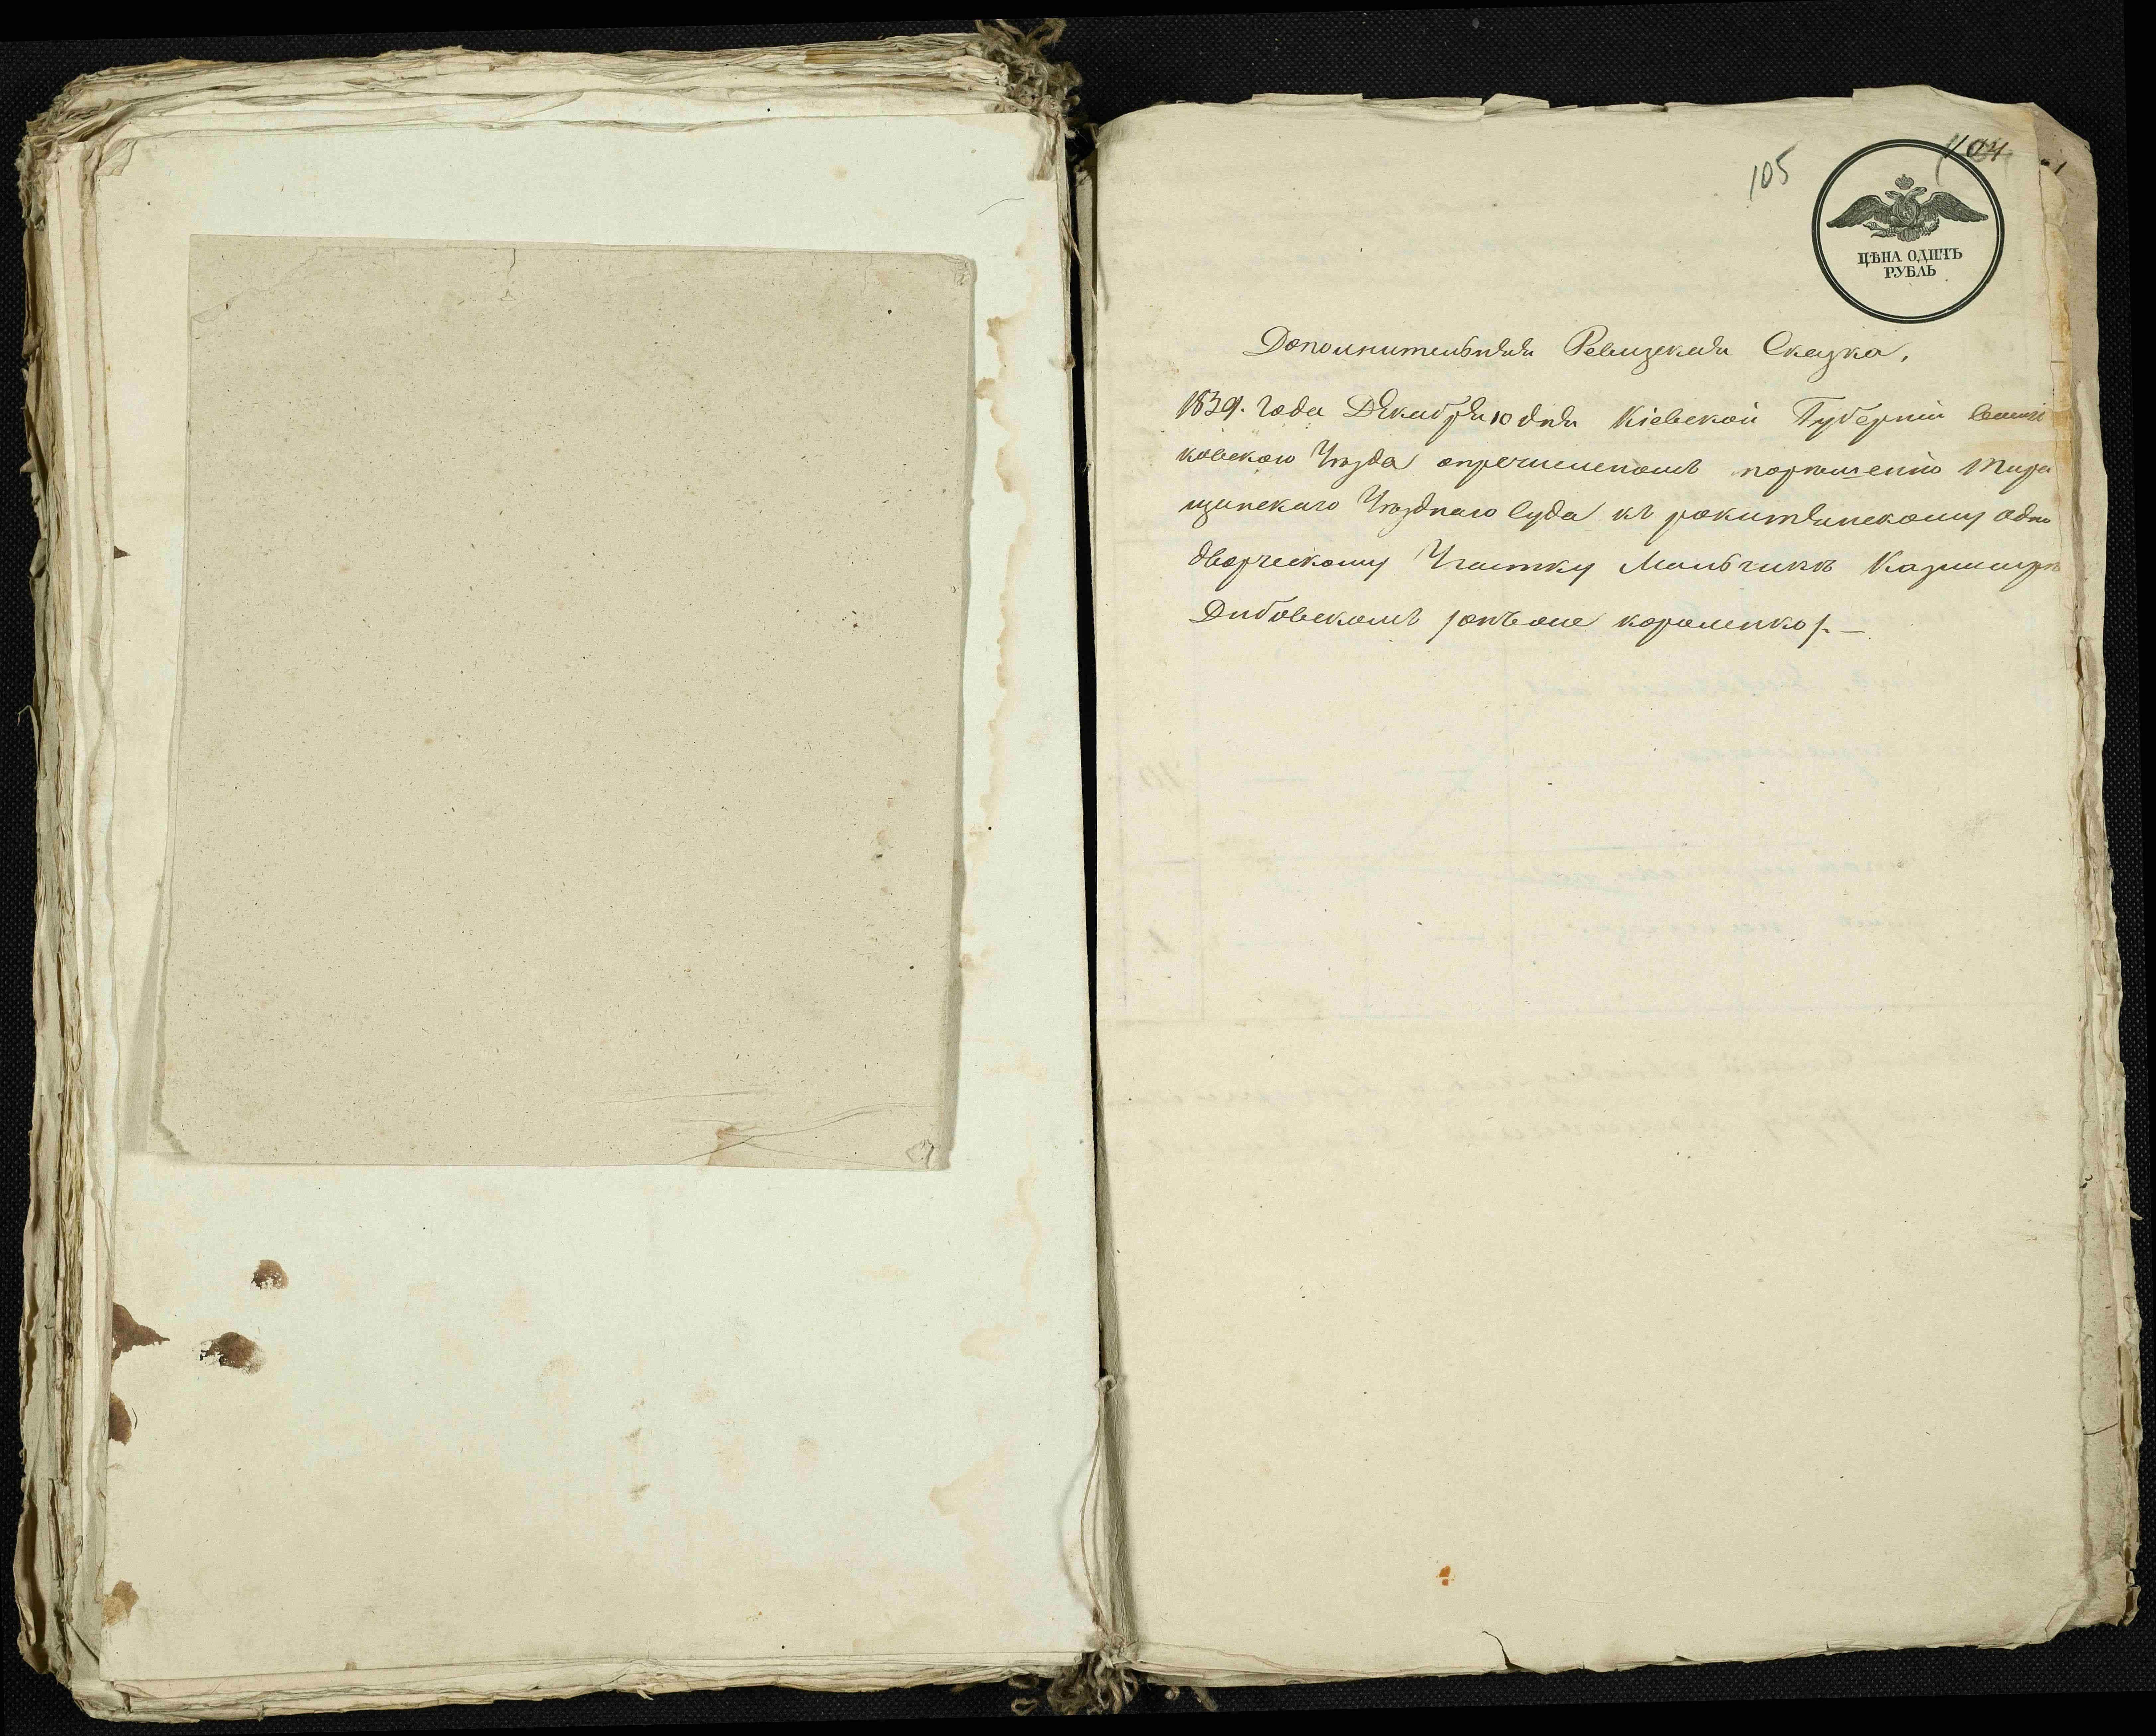 104
105
ЦѢНА ОДИНЪ
РУБЛЬ
Дополнительная Ревизская Сказка,
1839. Года Декабря 10 дня Кіевской Губерніи Василь
ковского Уѣзда опречисленомъ порѣшенію Тара
щанскаго Уѣзднаго Суда къ рокитянскому одно
дворческому Участку Мальчикѣ Казимирѣ
Дибовскомъ онъ короленко